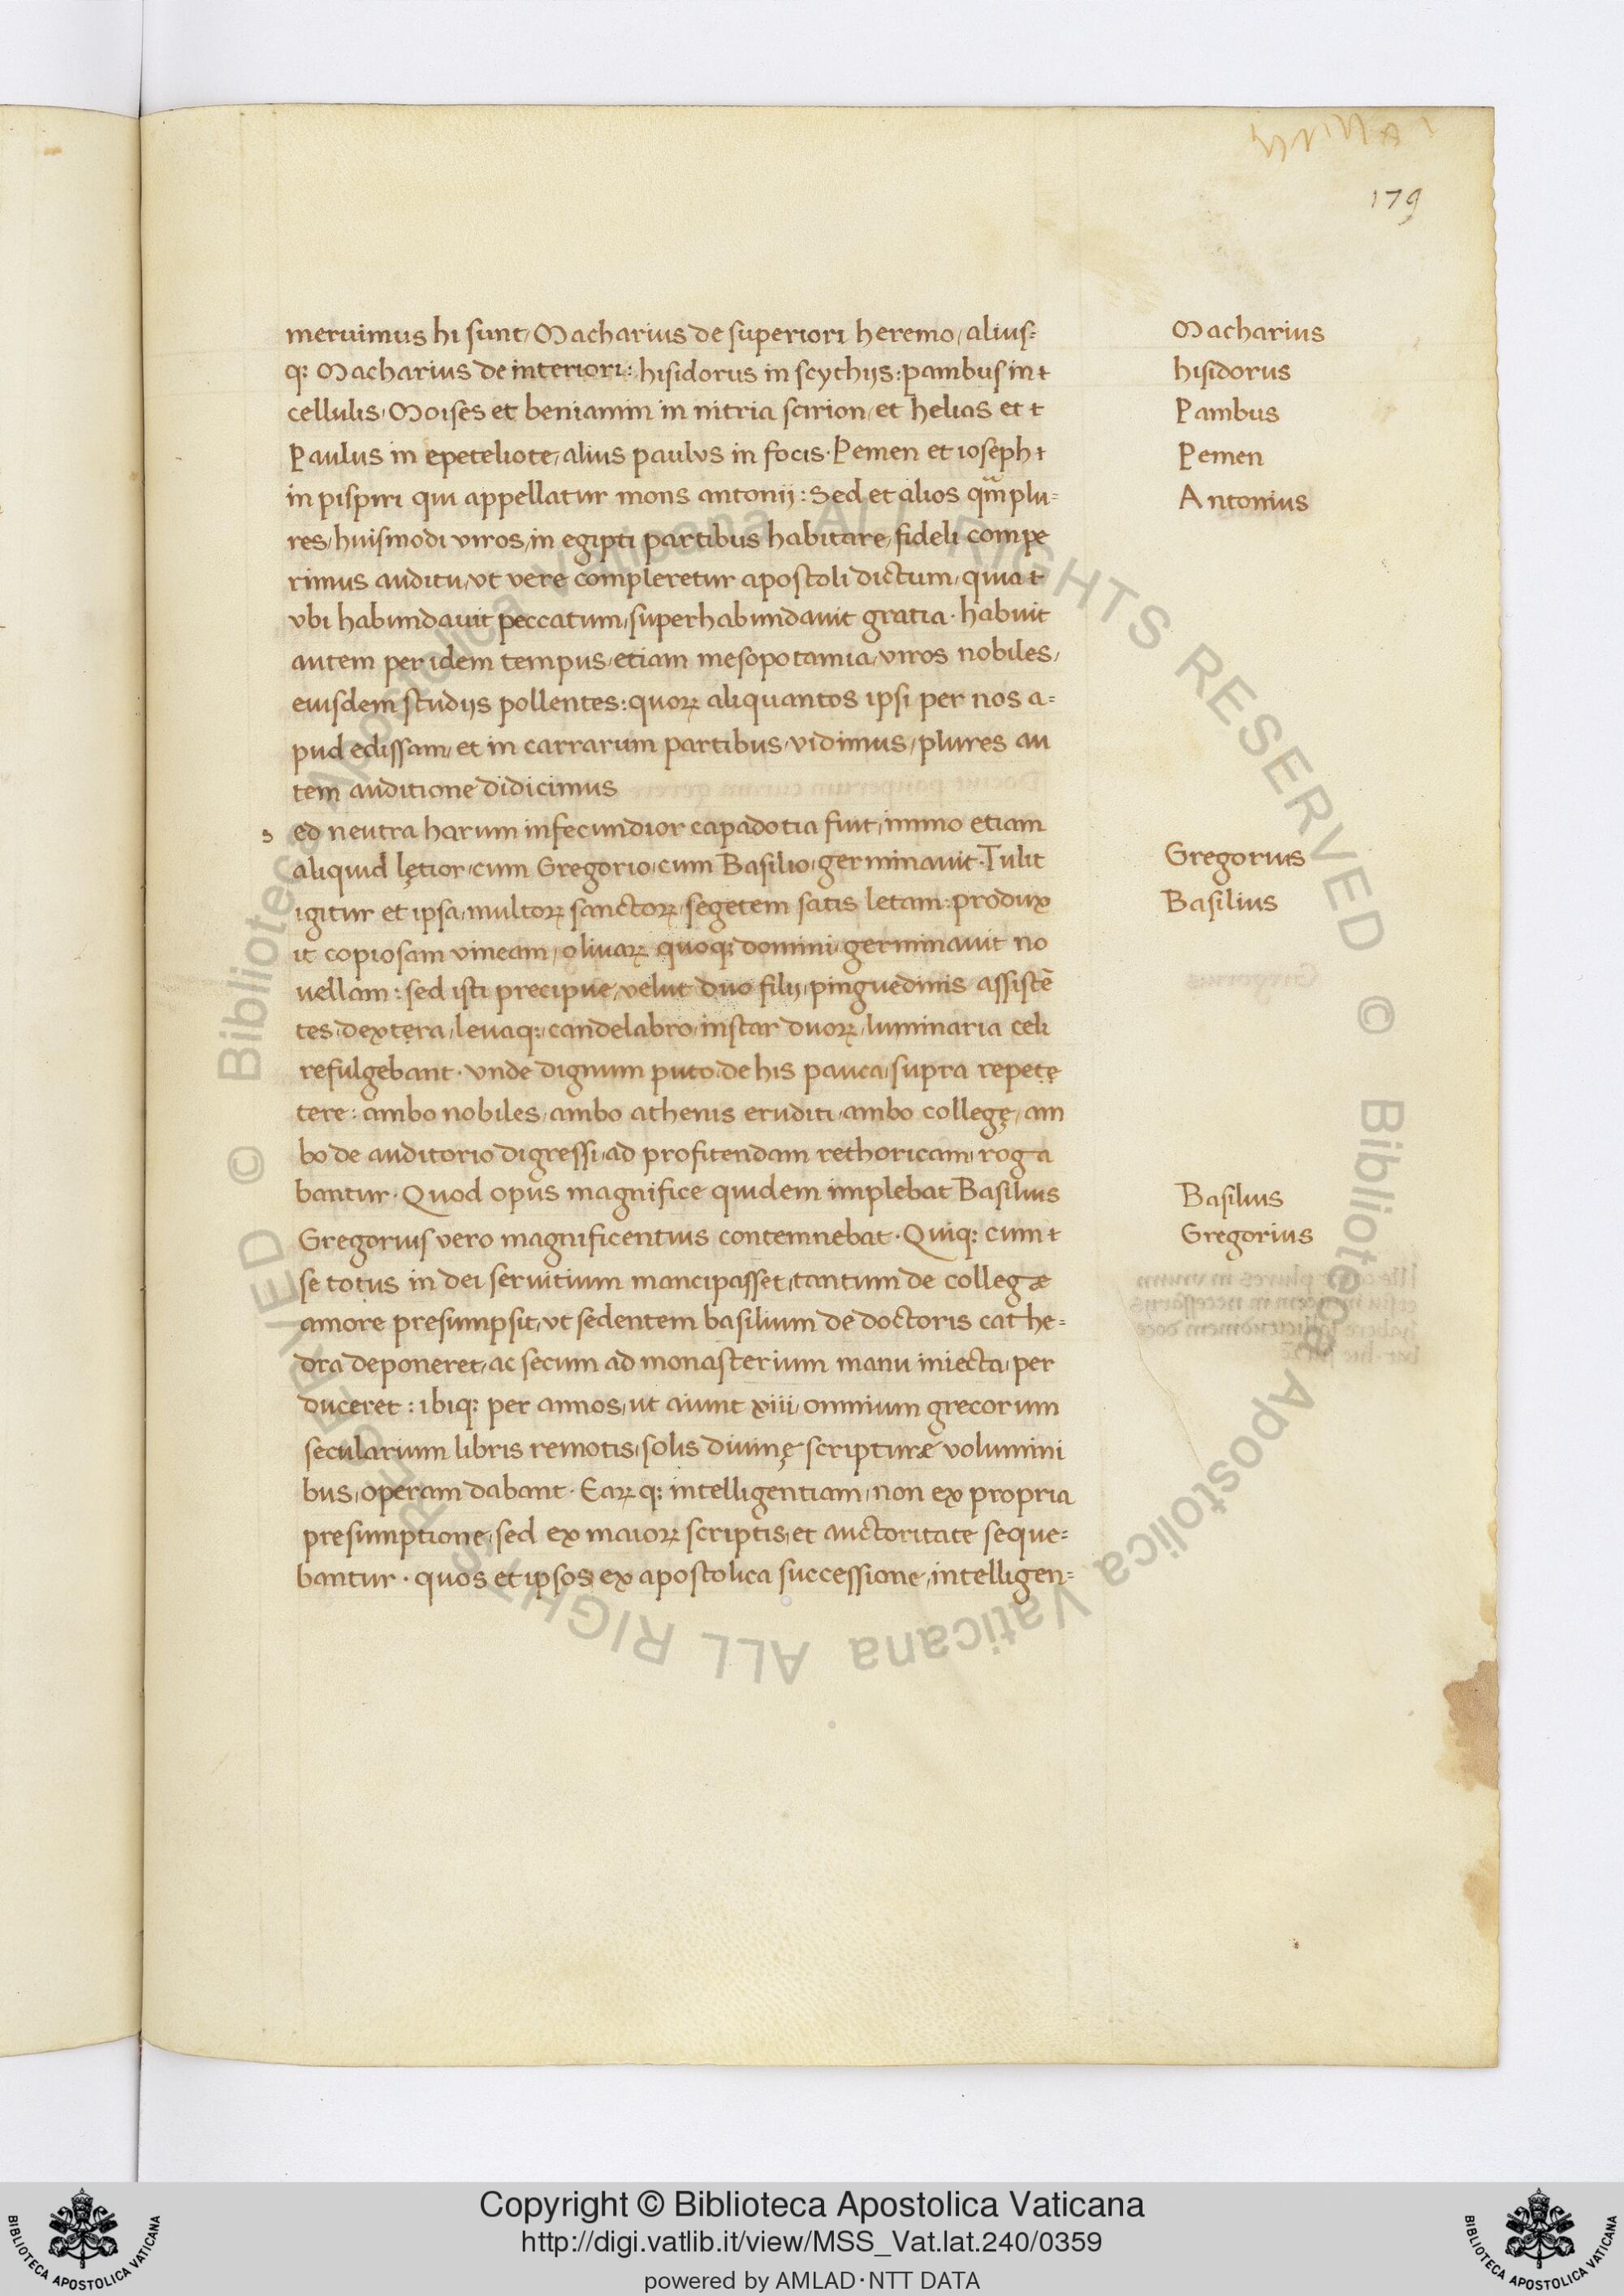 179
meruimus hi sunt, Macharius de superiori heremo, alius=
q: Macharius de interiori: hisidorus in scythijs: pambus in
cellulis, Moises et beniamin in nitria scirion, et helias et
Paulus in epeteliote, alius paulus in focis. Pemen et ioseph
in pispiri qui appellatur mons antonij: Sed et alios qm̄plu=
res, huismodi viros, in egipti partibus habitare, fideli compe
rimus auditu, vt vere compleretur apostoli dictum, quia
vbi habundauit peccatum, superhabundauit gratia. habuit
autem per idem tempus, etiam mesopotamia, viros nobiles,
eiusdem studijs pollentes: quoꝝ aliquantos ipsi per nos a=
pud edissam, et in carrarum partibus, vidimus, plures au
tem auditione didicimus
s ed neutra harum infecundior capadotia fuit, immo etiam
aliquid lętior, cum Gregorio, cum Basilio, germinauit. Tulit
igitur et ipsa, multoꝝ sanctoꝝ, segetem satis letam: produx
it copiosam vineam, oliuaꝝ quoq: domini, germinauit no
uellam: sed isti precipue, velut duo filij, pinguedinis assistē
tes, dextera, leuaq:, candelabro, instar duoꝝ, luminaria celi
refulgebant. vnde dignum puto, de his pauca, supra repetę
tere: ambo nobiles, ambo athenis eruditi, ambo collegę, am
bo de auditorio digressi, ad profitendam rethoricam, roga
bantur. Quod opus magnifice quidem implebat Basilius
Gregorius vero magnificentius contemnebat. Quiq: cum
se totus in dei seruitium mancipasset, tantum de collegæ
amore presumpsit, vt sedentem basilium de doctoris cathe=
dra deponeret, ac secum ad monasterium manu iniecta, per
duceret: ibiq: per annos, ut aiunt xiii, omnium grecorum
secularium libris remotis, solis diuinę scripturæ volumini
bus, operam dabant. Eaꝝ q: intelligentiam, non ex propria
presumptione, sed ex maioꝝ scriptis, et auctoritate seque=
bantur. quos et ipsos ex apostolica successione, intelligen=
Macharius
hisidorus
Pambus
Pemen
Antonius
Gregorius
Basilius
Basilius
Gregorius
© Biblioteca Apostolica Vaticana ALL RIGHTS RESERVED © Biblioteca Apostolica Vaticana ALL RIGHTS RESERVED
Copyright © Biblioteca Apostolica Vaticana
http://digi.vatlib.it/view/MSS_Vat.lat.240/0359
powered by AMLAD·NTT DATA
BIBLIOTECA APOSTOLICA VATICANA
BIBLIOTECA APOSTOLICA VATICANA